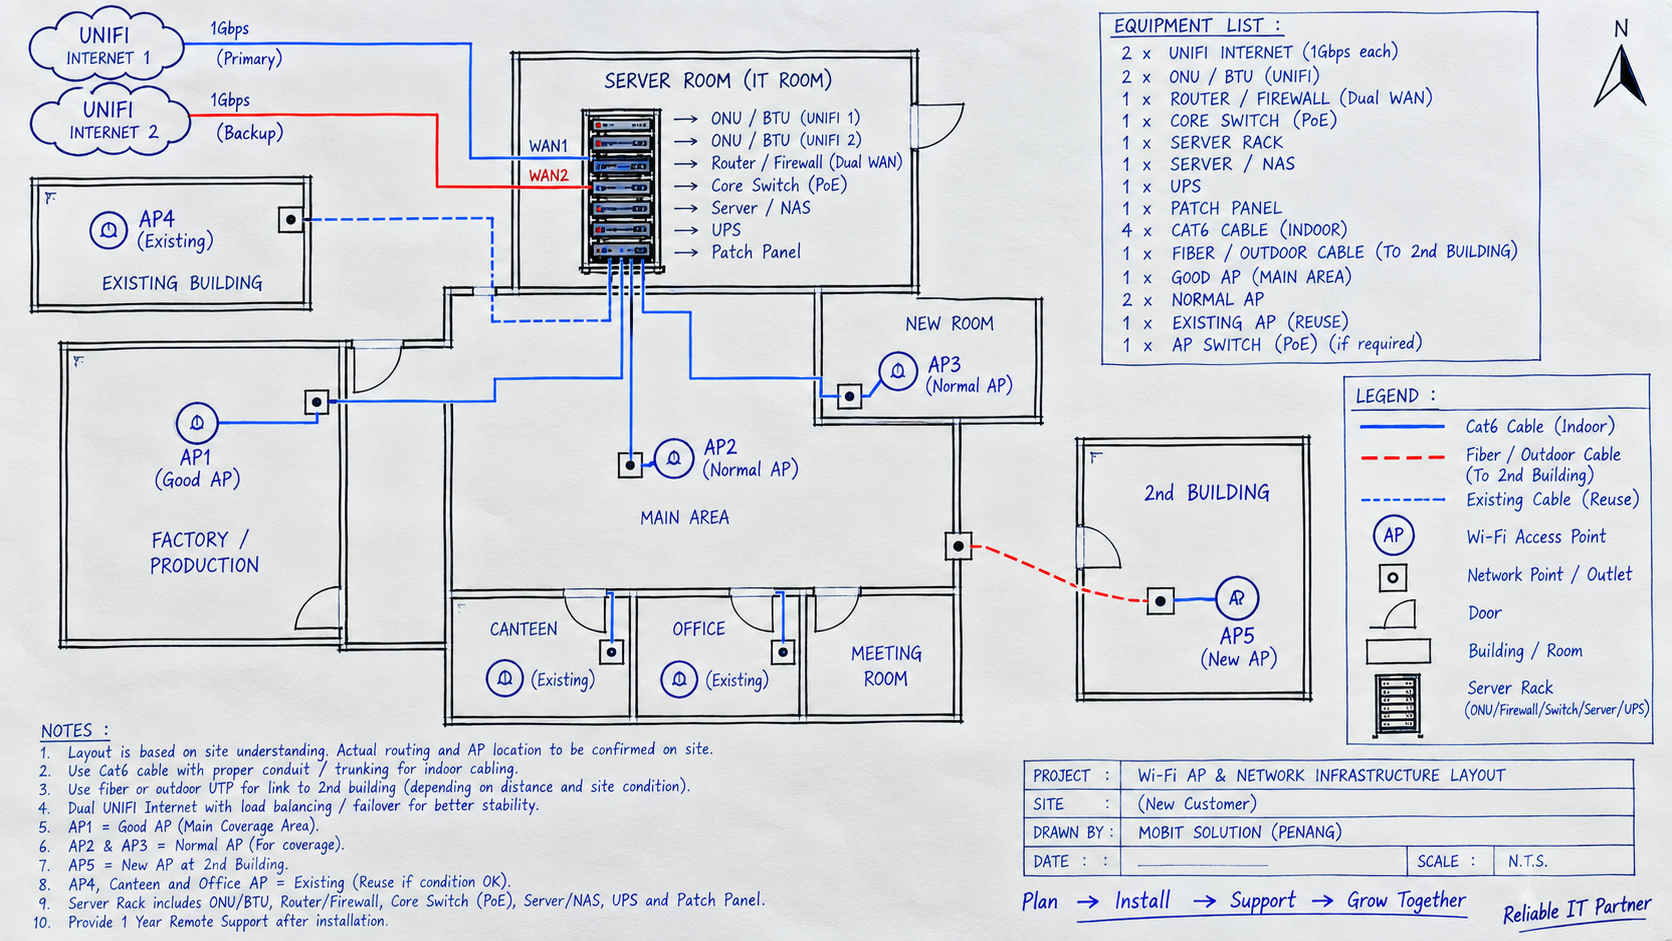 UNIFI
INTERNET 1
1Gbps
(Primary)
UNIFI
INTERNET 2
1Gbps
(Backup)
WAN1
WAN2
SERVER ROOM (IT ROOM)
→ ONU / BTU (UNIFI 1)
→ ONU / BTU (UNIFI 2)
→ Router / Firewall (Dual WAN)
→ Core Switch (PoE)
→ Server / NAS
→ UPS
→ Patch Panel
EQUIPMENT LIST :
2 x UNIFI INTERNET (1Gbps each)
2 x ONU / BTU (UNIFI)
1 x ROUTER / FIREWALL (Dual WAN)
1 x CORE SWITCH (PoE)
1 x SERVER RACK
1 x SERVER / NAS
1 x UPS
1 x PATCH PANEL
4 x CAT6 CABLE (INDOOR)
1 x FIBER / OUTDOOR CABLE (TO 2nd BUILDING)
1 x GOOD AP (MAIN AREA)
2 x NORMAL AP
1 x EXISTING AP (REUSE)
1 x AP SWITCH (PoE) (if required)
N
AP4
(Existing)
EXISTING BUILDING
AP1
(Good AP)
FACTORY /
PRODUCTION
NEW ROOM
AP3
(Normal AP)
AP2
(Normal AP)
MAIN AREA
CANTEEN
(Existing)
OFFICE
(Existing)
MEETING
ROOM
2nd BUILDING
AP5
(New AP)
LEGEND :
Cat6 Cable (Indoor)
Fiber / Outdoor Cable
(To 2nd Building)
Existing Cable (Reuse)
AP
Wi-Fi Access Point
Network Point / Outlet
Door
Building / Room
Server Rack
(ONU/Firewall/Switch/Server/UPS)
NOTES :
1. Layout is based on site understanding. Actual routing and AP location to be confirmed on site.
2. Use Cat6 cable with proper conduit / trunking for indoor cabling.
3. Use fiber or outdoor UTP for link to 2nd building (depending on distance and site condition).
4. Dual UNIFI Internet with load balancing / failover for better stability.
5. AP1 = Good AP (Main Coverage Area).
6. AP2 & AP3 = Normal AP (For coverage).
7. AP5 = New AP at 2nd Building.
8. AP4, Canteen and Office AP = Existing (Reuse if condition OK).
9. Server Rack includes ONU/BTU, Router/Firewall, Core Switch (PoE), Server/NAS, UPS and Patch Panel.
10. Provide 1 Year Remote Support after installation.
PROJECT : Wi-Fi AP & NETWORK INFRASTRUCTURE LAYOUT
SITE : (New Customer)
DRAWN BY : MOBIT SOLUTION (PENANG)
DATE : : SCALE : N.T.S.
Plan → Install → Support → Grow Together
Reliable IT Partner